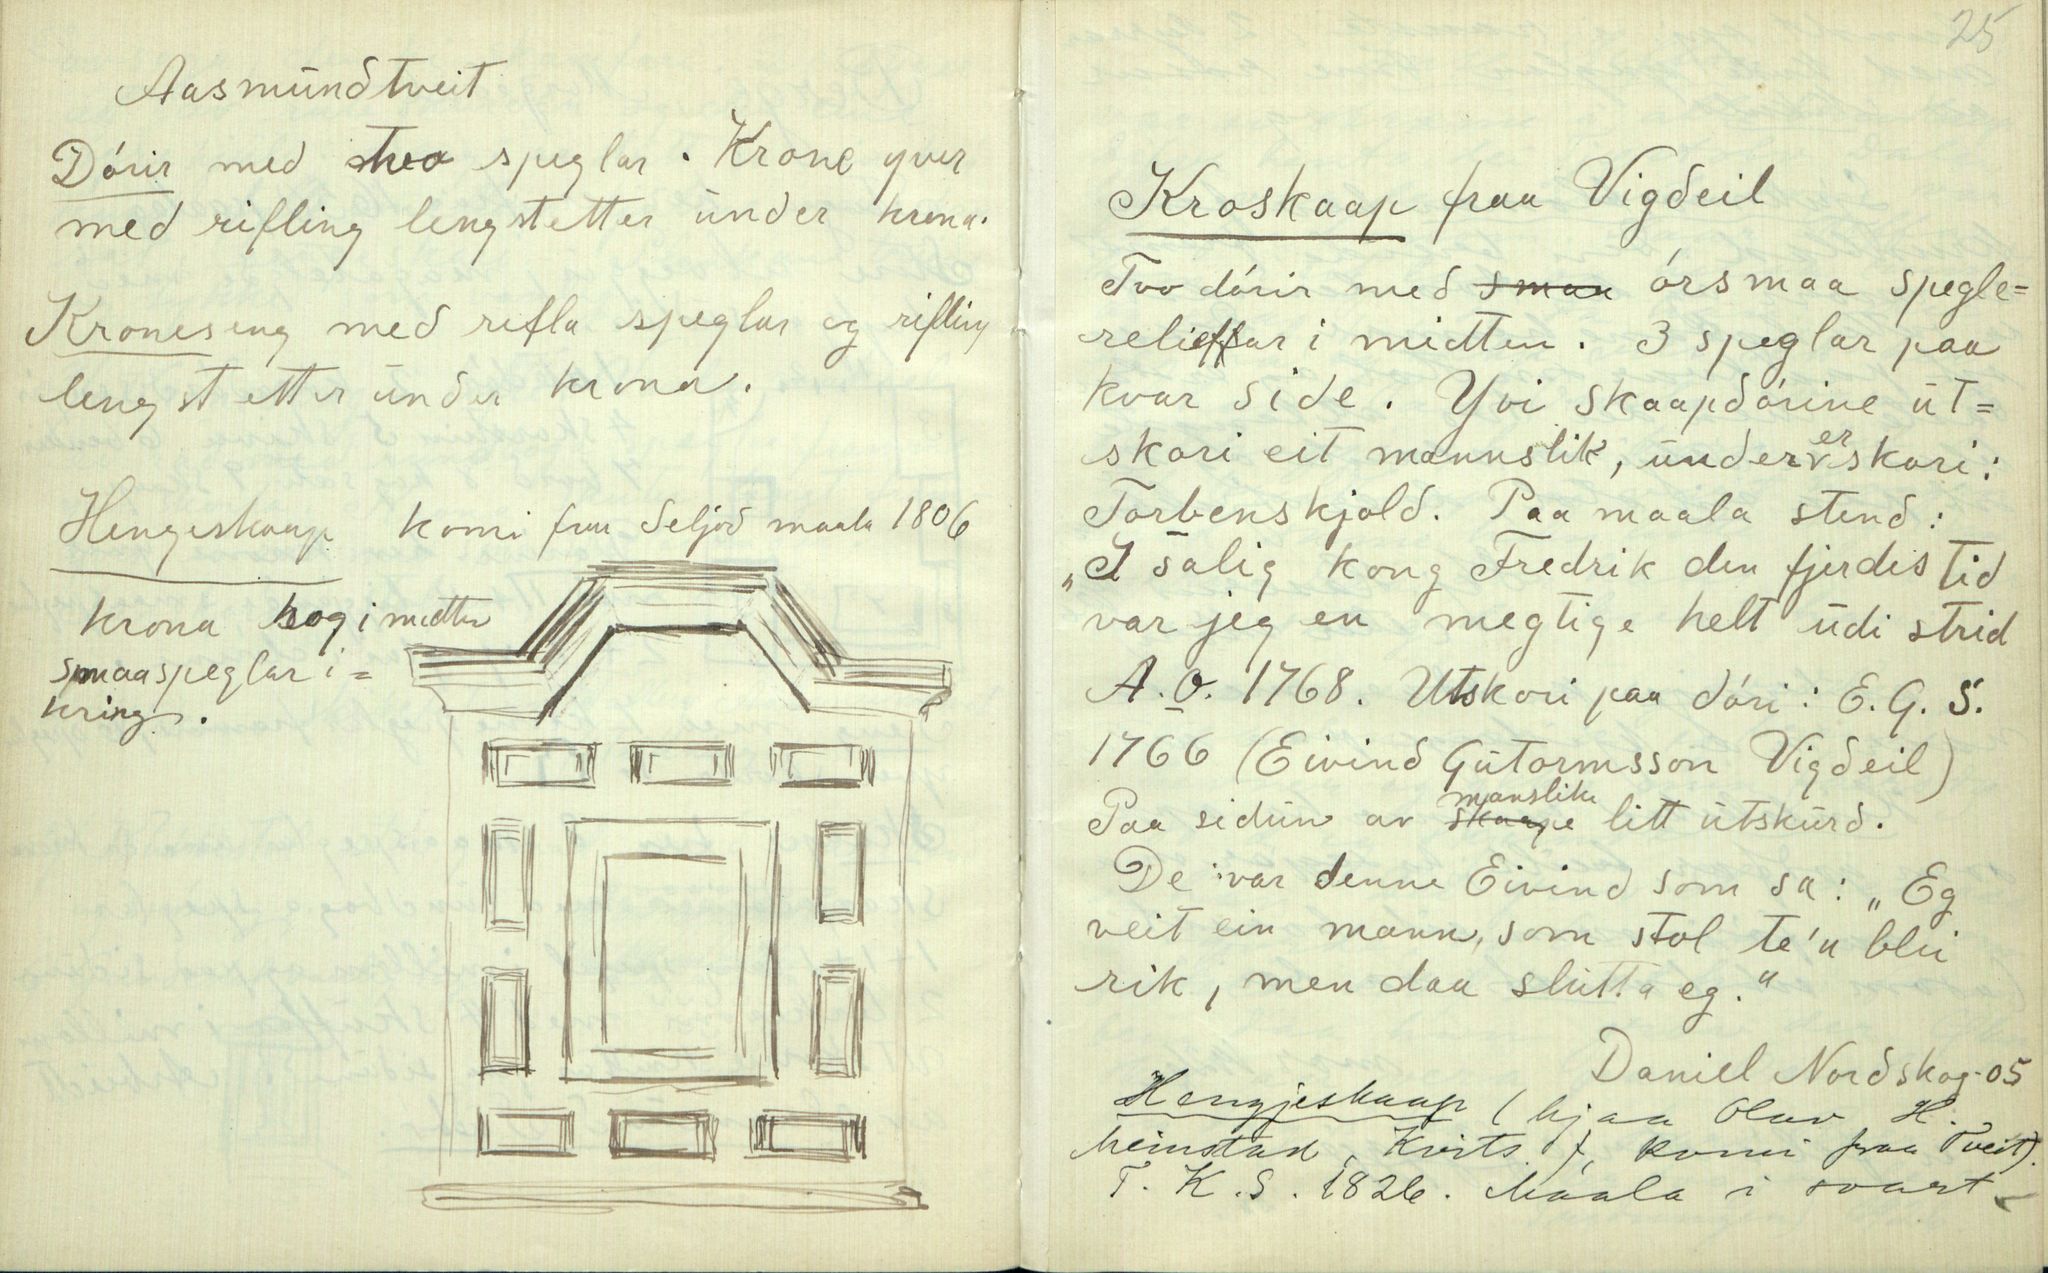 Aasmundtveit
Dórir med tvo speglar. Krone yver
med rifling lengstetter under krona.
Kroneseng med rifla speglar og rifling
lengstetter under krona.
Hengeskaap komi fraa Seljor maala 1806
krona høg i midten
smaaspeglar i=
kring.
25
Kroskaap fraa Vigdeil
Tvo dórir med smaa órsmaa spegle=
relieffar i midten. 3 speglar paa
kvar side. Yvi skaapdórine ut=
skori eit mannslik, under er skori:
Torbenskjold. Paa maala stend:
„I salig kong Fredrik den fjerdes tid
var jeg en megtige helt udi strid
A.O. 1768. Utskori paa dóri: E.G.S.
1766 (Eivind Gutormsson Vigdeil)
Paa sidun av skaape manslike litt utskurd.
De var denne Eivind som sa: „Eg
veit ein mann, som stol te'n blei
rik, men daa slutta eg."
Daniel Nordskog-05
Hengjeskaap (hjaa Olav H.
Meinstad, Kvits., komi fraa Tveit).
T.K.S. 1826. Maala i svart